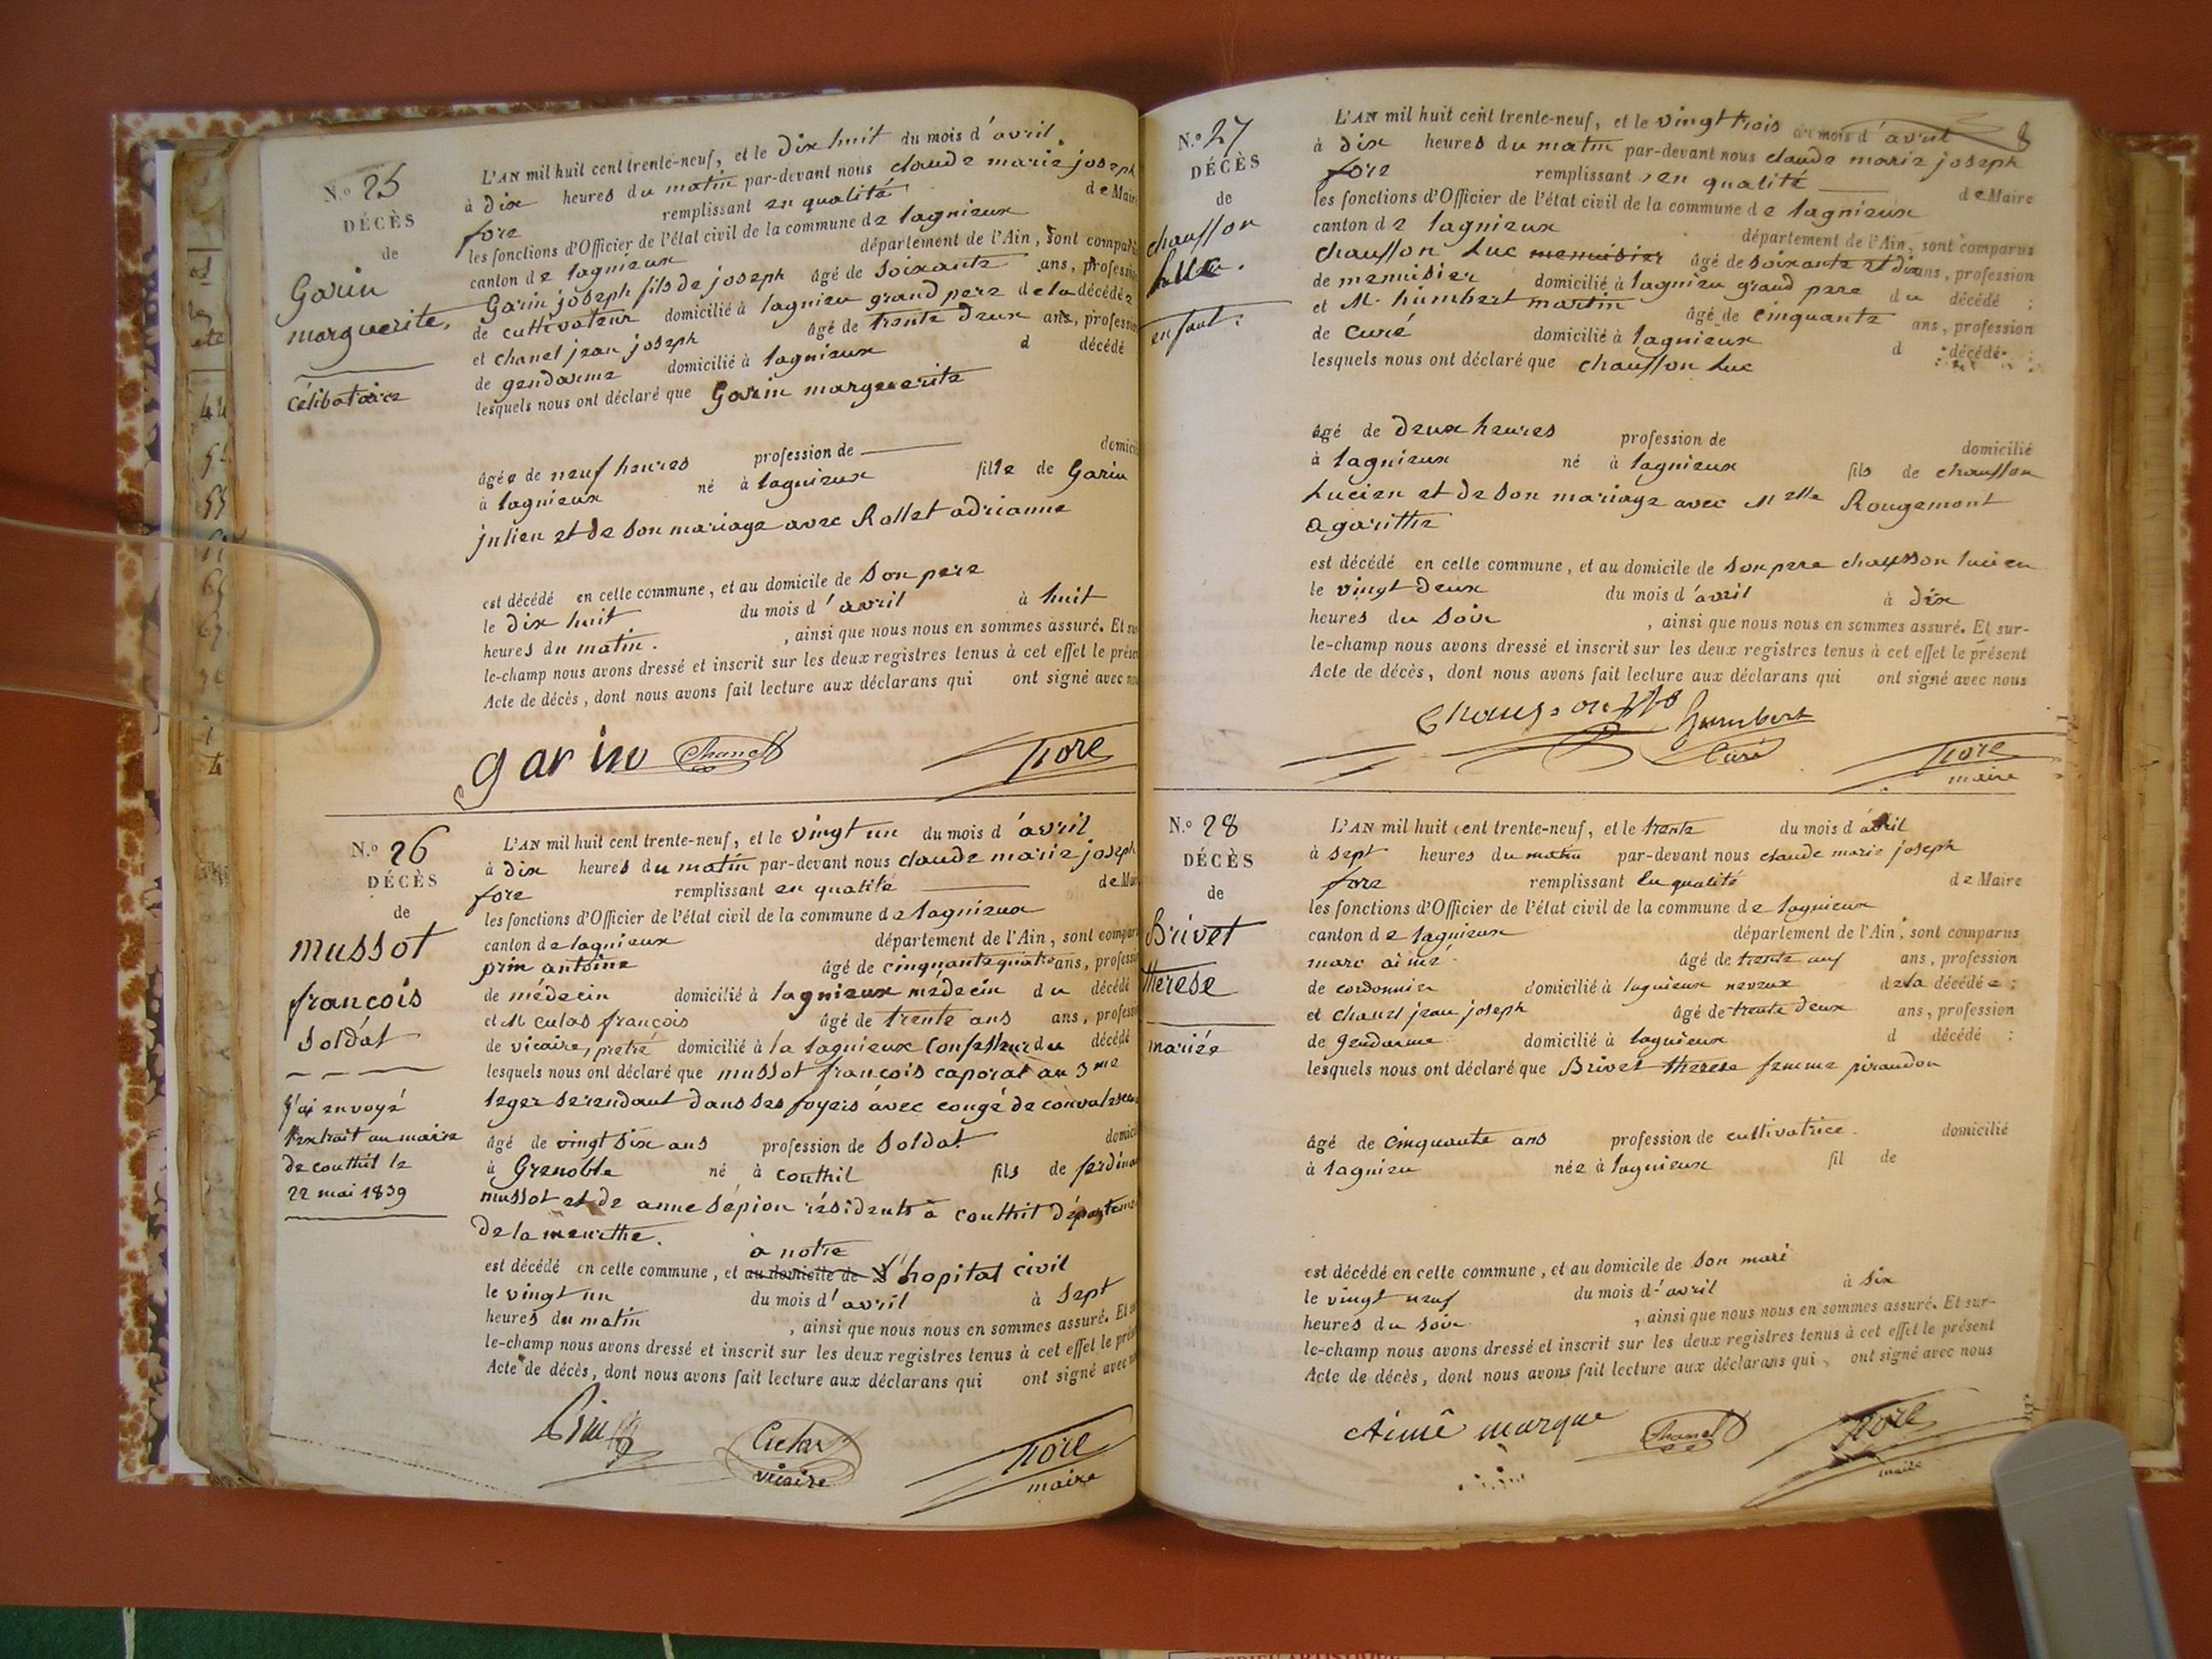 N.º 25
DÉCÈS
de
Garin
marguerite,
célibataire
L'AN mil huit cent trente-neuf, et le dix huit du mois d'avril
à dix heures du matin par-devant nous claude marie joseph
fore remplissant en qualité de Maire
les fonctions d'Officier de l'état civil de la commune de lagnieux
canton de lagnieux département de l'Ain, sont comparus
Garin joseph fils de joseph âgé de soixante ans, profession
de cultivateur domicilié à lagnieu grand pere de la décédée
et chanel jean joseph âgé de trente deux ans, profession
de gendarme domicilié à lagnieux d décédé
lesquels nous ont déclaré que Garin marguerite
âgée de neuf heures profession de domicilié
à lagnieux né à lagnieux fille de Garin
julien et de son mariage avec Rollet adrianne
est décédé en celle commune, et au domicile de son pere
le dix huit du mois d'avril à huit
heures du matin. , ainsi que nous nous en sommes assuré. Et sur
le-champ nous avons dressé et inscrit sur les deux registres tenus à cet effet le présent
Acte de décès, dont nous avons fait lecture aux déclarans qui ont signé avec nous
garin Chanel fore
N.º 26
DÉCÈS
de
mussot
francois
soldat
j'ai envoyé
l'extrait au maire
de couthil le
22 mai 1839
L'AN mil huit cent trente-neuf, et le vingt un du mois d'avril
à dix heures du matin par-devant nous claude marie joseph
fore remplissant en qualité de Maire
les fonctions d'Officier de l'état civil de la commune de lagnieux
canton de lagnieux département de l'Ain, sont comparus
prin antoine âgé de cinquante quatre ans, profession
de médecin domicilié à lagnieux médecin du décédé
et M culas françois âgé de trente ans ans, profession
de vicaire, pretre domicilié à la lagnieux confesseur du décédé
lesquels nous ont déclaré que mussot francois caporal au 3me
leger se rendant dans ses foyers avec congé de convalescence
âgé de vingt six ans profession de soldat domicilié
à Grenoble né à couthil fils de ferdinand
mussot et de anne sépion résidents à couthil département
de la meurthe.
à notre
est décédé en celle commune, et au domicile de l'hopital civil
le vingt un du mois d'avril à sept
heures du matin , ainsi que nous nous en sommes assuré. Et sur
le-champ nous avons dressé et inscrit sur les deux registres tenus à cet effet le présent
Acte de décès, dont nous avons fait lecture aux déclarans qui ont signé avec nous
Prin Culas fore
vicaire maire
N.º 27
DÉCÈS
de
chausson
Luc.
enfant.
L'AN mil huit cent trente-neuf, et le vingt trois du mois d'avril 8
à dix heures du matin par-devant nous claude marie joseph
fore remplissant en qualité de Maire
les fonctions d'Officier de l'état civil de la commune de lagnieux
canton de lagnieux département de l'Ain, sont comparus
chausson Luc menuisier âgé de soixante et dix ans, profession
de menuisier domicilié à lagnieu grand pere du décédé ;
et M. humbert martin âgé de cinquante ans, profession
de curé domicilié à lagnieux d décédé ;
lesquels nous ont déclaré que chausson Luc
âgé de deux heures profession de domicilié
à lagnieux né à lagnieux fils de chausson
Lucien et de son mariage avec Melle Rougemont
agaritte
est décédé en celle commune, et au domicile de son pere chausson lucien
le vingt deux du mois d'avril à dix
heures du soir , ainsi que nous nous en sommes assuré. Et sur-
le-champ nous avons dressé et inscrit sur les deux registres tenus à cet effet le présent
Acte de décès, dont nous avons fait lecture aux déclarans qui ont signé avec nous
Chausson humbert
Curé fore
maire
N.º 28
DÉCÈS
de
Brivet
therese
mariée
L'AN mil huit cent trente-neuf, et le trente du mois d'avril
à sept heures du matin par-devant nous claude marie joseph
fore remplissant en qualité de Maire
les fonctions d'Officier de l'état civil de la commune de lagnieux
canton de lagnieux département de l'Ain, sont comparus
marc aimé âgé de trente neuf ans, profession
de cordonnier domicilié à lagnieux neveux de la décédée ;
et chanel jean joseph âgé de trente deux ans, profession
de gendarme domicilié à lagnieux d décédé ;
lesquels nous ont déclaré que Brivet therese femme piraudon
âgé de cinquante ans profession de cultivatrice domicilié
à lagnieu née à lagnieux fil de
est décédé en celle commune, et au domicile de son mari
le vingt neuf du mois d'avril à six
heures du soir , ainsi que nous nous en sommes assuré. Et sur-
le-champ nous avons dressé et inscrit sur les deux registres tenus à cet effet le présent
Acte de décès, dont nous avons fait lecture aux déclarans qui ont signé avec nous
Aimé marque Chanel fore
maire